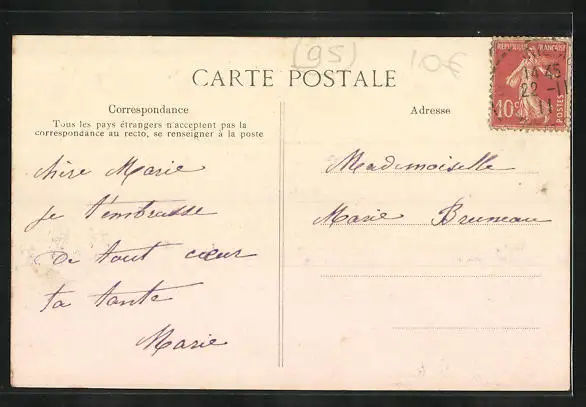 (95)
10€
CARTE POSTALE
REPUBLIQUE FRANÇAISE
14 45
22 -11
11
10c
POSTES
Correspondance
Tous les pays étrangers n'acceptent pas la
correspondance au recto, se renseigner à la poste
chère Marie
je t'embrasse
de tout cœur
ta tante
Marie
Adresse
Mademoiselle
Marie Bruneau